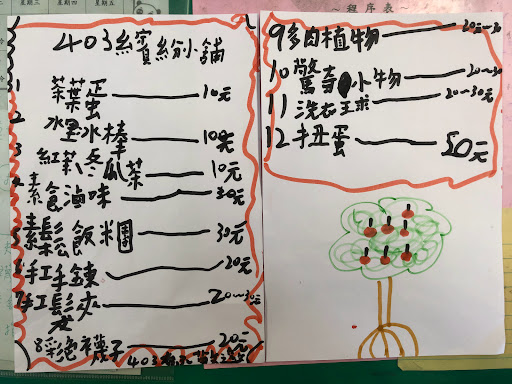 403繽紛小舖
1 茶葉蛋 10元
2 水墨冰棒 10元
3 紅茶冬瓜茶 10元
4 素食滷味 30元
5 素鬆飯糰 30元
6 手工手鍊 20元
7 手工髮夾 20~30元
8 彩色襪子 20元
9 多肉植物 20元~30
10 驚奇小物 20~30
11 洗衣球 20~30元
12 扭蛋 50元
程序表
星期三 星期四